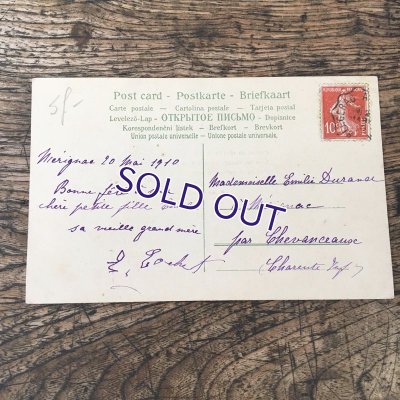 5f-
Post card - Postkarte - Briefkaart
Carte postale - Cartolina postale - Tarjeta postal
Levelező-Lap - ОТКРЫТОЕ ПИСЬМО - Dopisnice
Korespondenční listek - Brefkort - Brevkort
Union postale universelle - Unione postale universale.
10
Mérignac 20 Mai 1910
Bonne fête
chère petite fille
sa vieille grand mère
Mademoiselle Emilie Durand
Mérignac
par Chevanceaux
(Charente Inf)
SOLD OUT